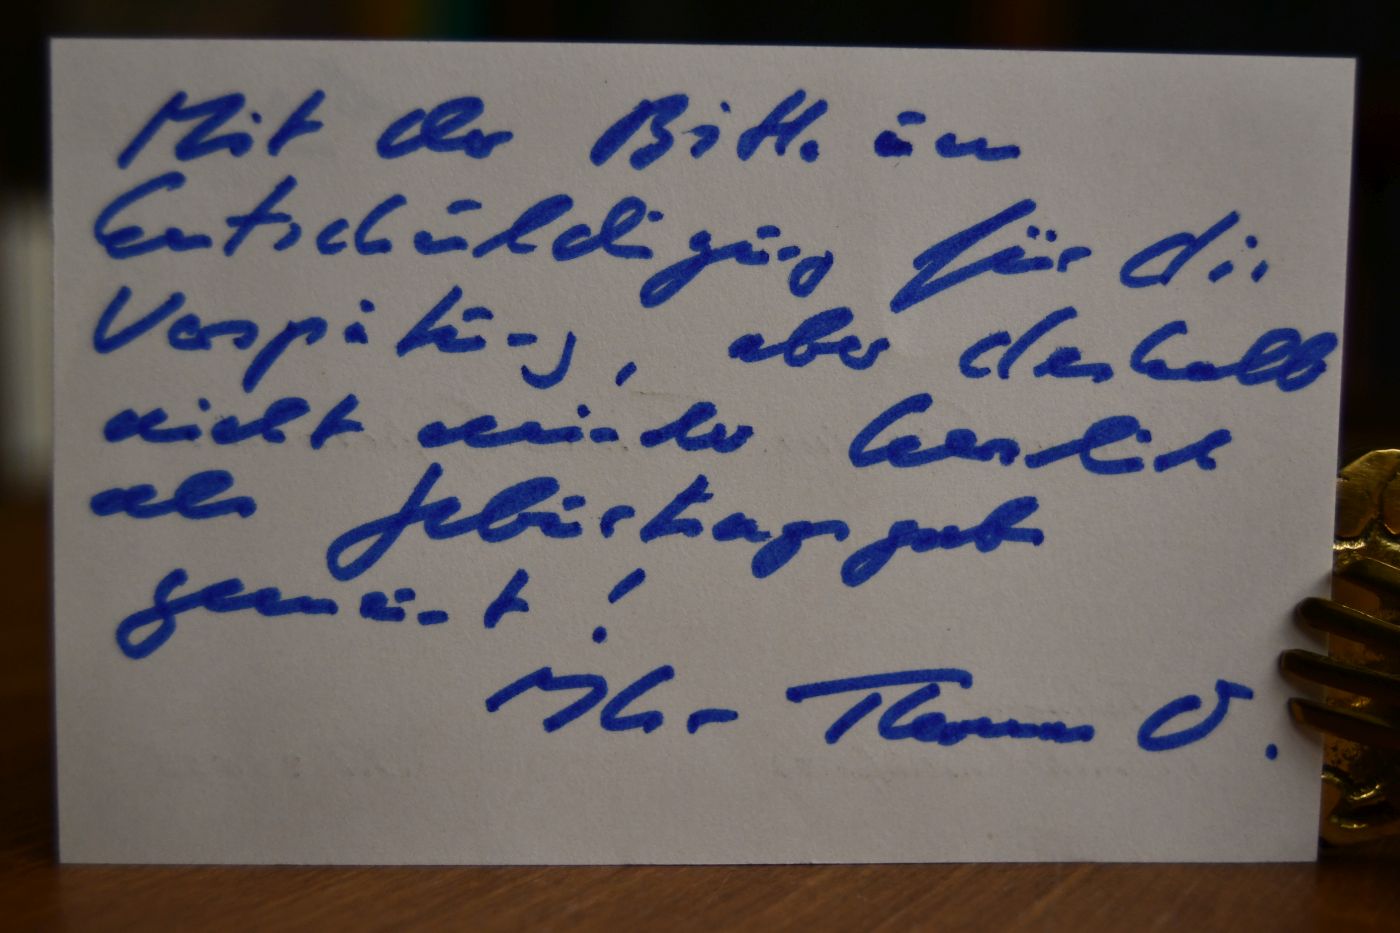 Mit der Bitte um
Entschuldigung für die
Verspätung, aber deshalb
nicht minder herzlich
als Geburtstagsgabe
gemeint!
Ihr Thomas O.